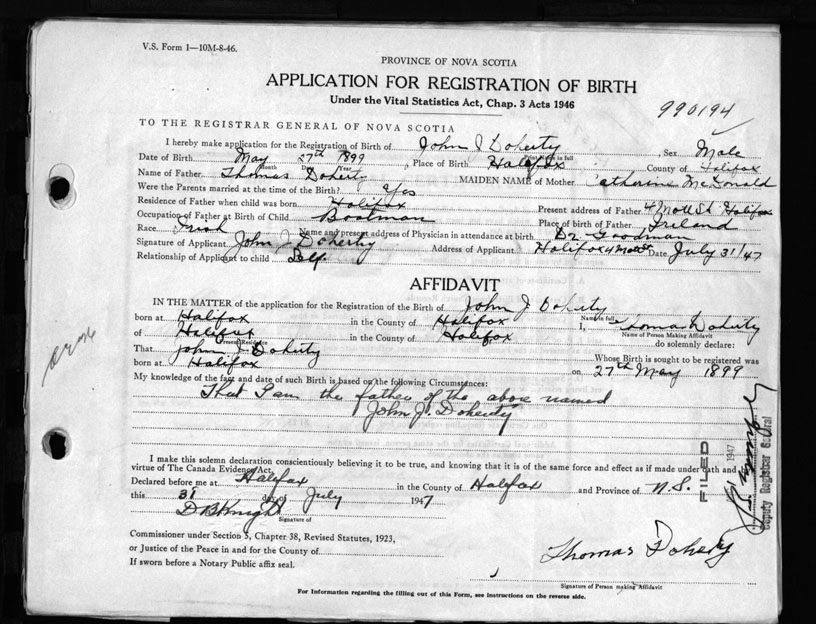 V.S. Form 1—10M-8-46.
PROVINCE OF NOVA SCOTIA
APPLICATION FOR REGISTRATION OF BIRTH
Under the Vital Statistics Act, Chap. 3 Acts 1946
990194
TO THE REGISTRAR GENERAL OF NOVA SCOTIA
I hereby make application for the Registration of Birth of John J Doherty Sex Male
Print Name in full
Date of Birth May 27th 1899 Place of Birth Halifax County of Halifax
Month Day Year
Name of Father Thomas Doherty MAIDEN NAME of Mother Catherine McDonald
Were the Parents married at the time of the Birth? Yes
Residence of Father when child was born Halifax Present address of Father 4 Mott St Halifax
Occupation of Father at Birth of Child Boatman Place of birth of Father Ireland
Race Irish Name and present address of Physician in attendance at birth Dr. Goodman
Signature of Applicant John J Doherty Address of Applicant Halifax 4 Mott St Date July 31/47
Relationship of Applicant to child Self
AFFIDAVIT
IN THE MATTER of the application for the Registration of the Birth of John J Doherty
Name in full
born at Halifax in the County of Halifax I, Thomas Doherty
Name of Person Making Affidavit
of Halifax in the County of Halifax do solemnly declare:
Present Residence
That John J Doherty Whose Birth is sought to be registered was
born at Halifax on 27th May 1899
My knowledge of the fact and date of such Birth is based on the following Circumstances:
That I am the father of the above named
John J. Doherty
I make this solemn declaration conscientiously believing it to be true, and knowing that it is of the same force and effect as if made under oath and
virtue of The Canada Evidence Act.
Declared before me at Halifax in the County of Halifax and Province of N.S.
this 31 day of July 1947
D B Knight
Signature of
Commissioner under Section 5, Chapter 38, Revised Statutes, 1923,
or Justice of the Peace in and for the County of
If sworn before a Notary Public affix seal.
Thomas Doherty
Signature of Person making Affidavit
For Information regarding the filling out of this Form, see instructions on the reverse side.
FILED
1947
Deputy Registrar General